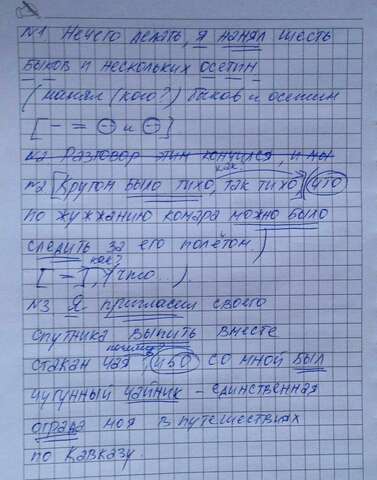 №1 Нечего делать, я нанял шесть
быков и нескольких осетин
(нанял (кого?) быков и осетин
[— = О и О]
№2 Разговор этим кончился, и мы
как?
№2 [Кругом было тихо, так тихо], (что
по жужжанию комара можно было
следить за его полётом.)
как?
[ = ], (что...).
№3 Я пригласил своего
спутника выпить вместе
почему?
стакан чая, ибо со мной был
чугунный чайник – единственная
отрада моя в путешествиях
по Кавказу.